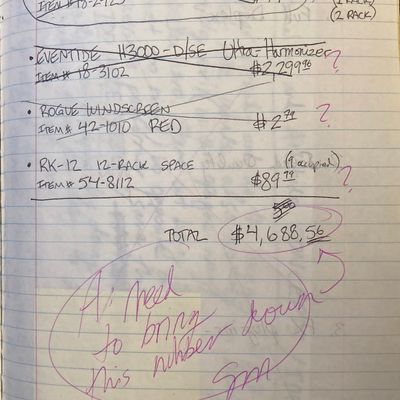 ITEM# 18-2723
(1 RACK)
(2 RACK)
• EVENTIDE H3000-D/SE Ultra-Harmonizer
ITEM# 18-3102 $2,299.96 ?
• ROGUE WINDSCREEN
ITEM# 42-1010 RED $2.79 ?
• RK-12 12-RACK SPACE (9 occupied)
ITEM# 54-8112 $89.79 ?
TOTAL $4,688.56
need
to bring
this number down